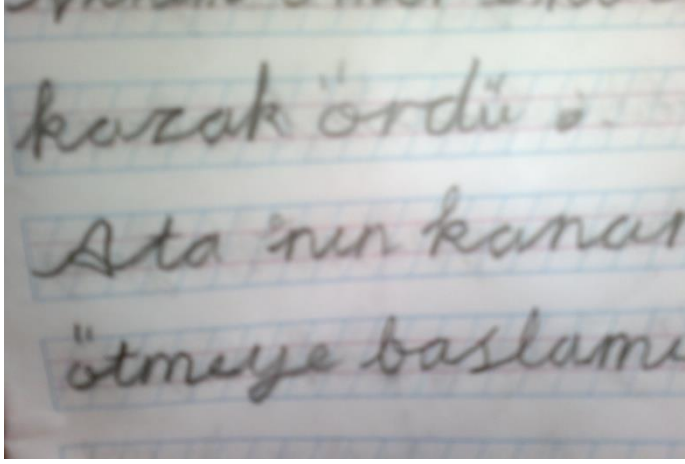 kazak ördü.
Ata'nın kanar
ötmeye başlamı